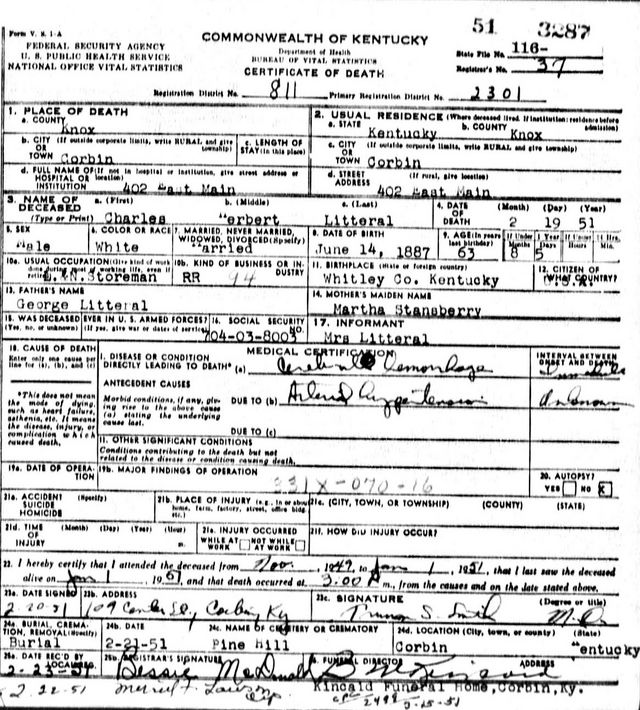 51 3287
Form V. S. 1-A
FEDERAL SECURITY AGENCY
U. S. PUBLIC HEALTH SERVICE
NATIONAL OFFICE VITAL STATISTICS
COMMONWEALTH OF KENTUCKY
Department of Health
BUREAU OF VITAL STATISTICS
CERTIFICATE OF DEATH
State File No. 116-
Registrar's No. 37
Registration District No. 811 Primary Registration District No. 2301
1. PLACE OF DEATH
a. COUNTY Knox
b. CITY (If outside corporate limits, write RURAL and give township) OR TOWN Corbin
c. LENGTH OF STAY (in this place)
d. FULL NAME OF (If not in hospital or institution, give street address or location) HOSPITAL OR INSTITUTION 402 East Main
2. USUAL RESIDENCE (Where deceased lived. If institution: residence before admission)
a. STATE Kentucky b. COUNTY Knox
c. CITY (If outside corporate limits, write RURAL and give township) OR TOWN Corbin
d. STREET ADDRESS (If rural, give location) 402 East Main
3. NAME OF DECEASED (Type or Print) a. (First) Charles b. (Middle) erbert c. (Last) Litteral
4. DATE OF DEATH (Month) (Day) (Year) 2 19 51
5. SEX ale
6. COLOR OR RACE White
7. MARRIED, NEVER MARRIED, WIDOWED, DIVORCED (Specify) arried
8. DATE OF BIRTH June 14, 1887
9. AGE (In years last birthday) 63 If Under 1 Year Months 8 Days 5 If Under 24 Hrs. Hours Min.
10a. USUAL OCCUPATION (Give kind of work done during most of working life, even if retired) Storeman
10b. KIND OF BUSINESS OR INDUSTRY RR 94
11. BIRTHPLACE (State or foreign country) Whitley Co. Kentucky
12. CITIZEN OF WHAT COUNTRY? U.S.A.
13. FATHER'S NAME
George Litteral
14. MOTHER'S MAIDEN NAME
Martha Stansberry
15. WAS DECEASED EVER IN U. S. ARMED FORCES? (Yes, no, or unknown) (If yes, give war or dates of service)
16. SOCIAL SECURITY NO. 704-03-8003
17. INFORMANT
Mrs Litteral
18. CAUSE OF DEATH
Enter only one cause per line for (a), (b), and (c)
*This does not mean the mode of dying, such as heart failure, asthenia, etc. It means the disease, injury, or complication which caused death.
MEDICAL CERTIFICATION
INTERVAL BETWEEN ONSET AND DEATH
I. DISEASE OR CONDITION DIRECTLY LEADING TO DEATH* (a) Cerebral Hemorrhage
ANTECEDENT CAUSES
Morbid conditions, if any, giving rise to the above cause (a) stating the underlying cause last.
DUE TO (b) Arterial Hypertension Unknown
DUE TO (c)
II. OTHER SIGNIFICANT CONDITIONS
Conditions contributing to the death but not related to the disease or condition causing death.
19a. DATE OF OPERATION
19b. MAJOR FINDINGS OF OPERATION
331X-070-16
20. AUTOPSY? YES NO X
21a. ACCIDENT SUICIDE HOMICIDE (Specify)
21b. PLACE OF INJURY (e.g., in or about home, farm, factory, street, office bldg. etc.)
21c. (CITY, TOWN, OR TOWNSHIP) (COUNTY) (STATE)
21d. TIME OF INJURY (Month) (Day) (Year) (Hour) m.
21e. INJURY OCCURRED WHILE AT WORK NOT WHILE AT WORK
21f. HOW DID INJURY OCCUR?
22. I hereby certify that I attended the deceased from Nov. 1949, to Jan 1, 1951, that I last saw the deceased
alive on Jan 1, 1951, and that death occurred at 3:00 A m., from the causes and on the date stated above.
23a. DATE SIGNED 2-20-51
23b. ADDRESS 109 Center St, Corbin Ky
23c. SIGNATURE Truman S. Smith (Degree or title) M.D.
24a. BURIAL, CREMATION, REMOVAL (Specify) Burial
24b. DATE 2-21-51
24c. NAME OF CEMETERY OR CREMATORY Pine Hill
24d. LOCATION (City, town, or county) (State) Corbin entucky
25a. DATE REC'D BY LOCAL REG. 2-23-51
25b. REGISTRAR'S SIGNATURE Bessie McDonald
FUNERAL DIRECTOR ADDRESS
2-22-51
Kincaid Funeral Home, Corbin, Ky.